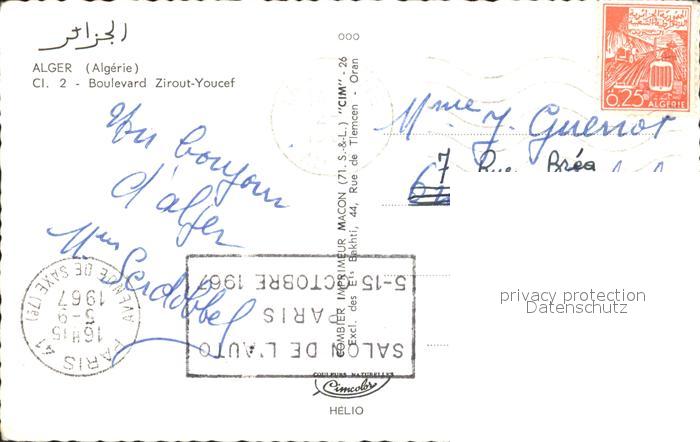 الجزائر
ALGER (Algérie)
Cl. 2 - Boulevard Zirout-Youcef
Un bonjour
d'alger
ooo
COMBIER IMPRIMEUR MACON (71. S.-&-L.) "CIM" - 26
Excl. des Ets Bakhti, 44, Rue de Tlemcen - Oran
0,25 ALGERIE
Mme J. Guenot
7 Rue Bréa
PARIS 41
16H15
5-9
1967
AVENUE DE SAXE (7e)
SALON DE L'AUTO
PARIS
5-15 OCTOBRE 1967
COULEURS NATURELLES
Cimcolor
HÉLIO
privacy protection
Datenschutz